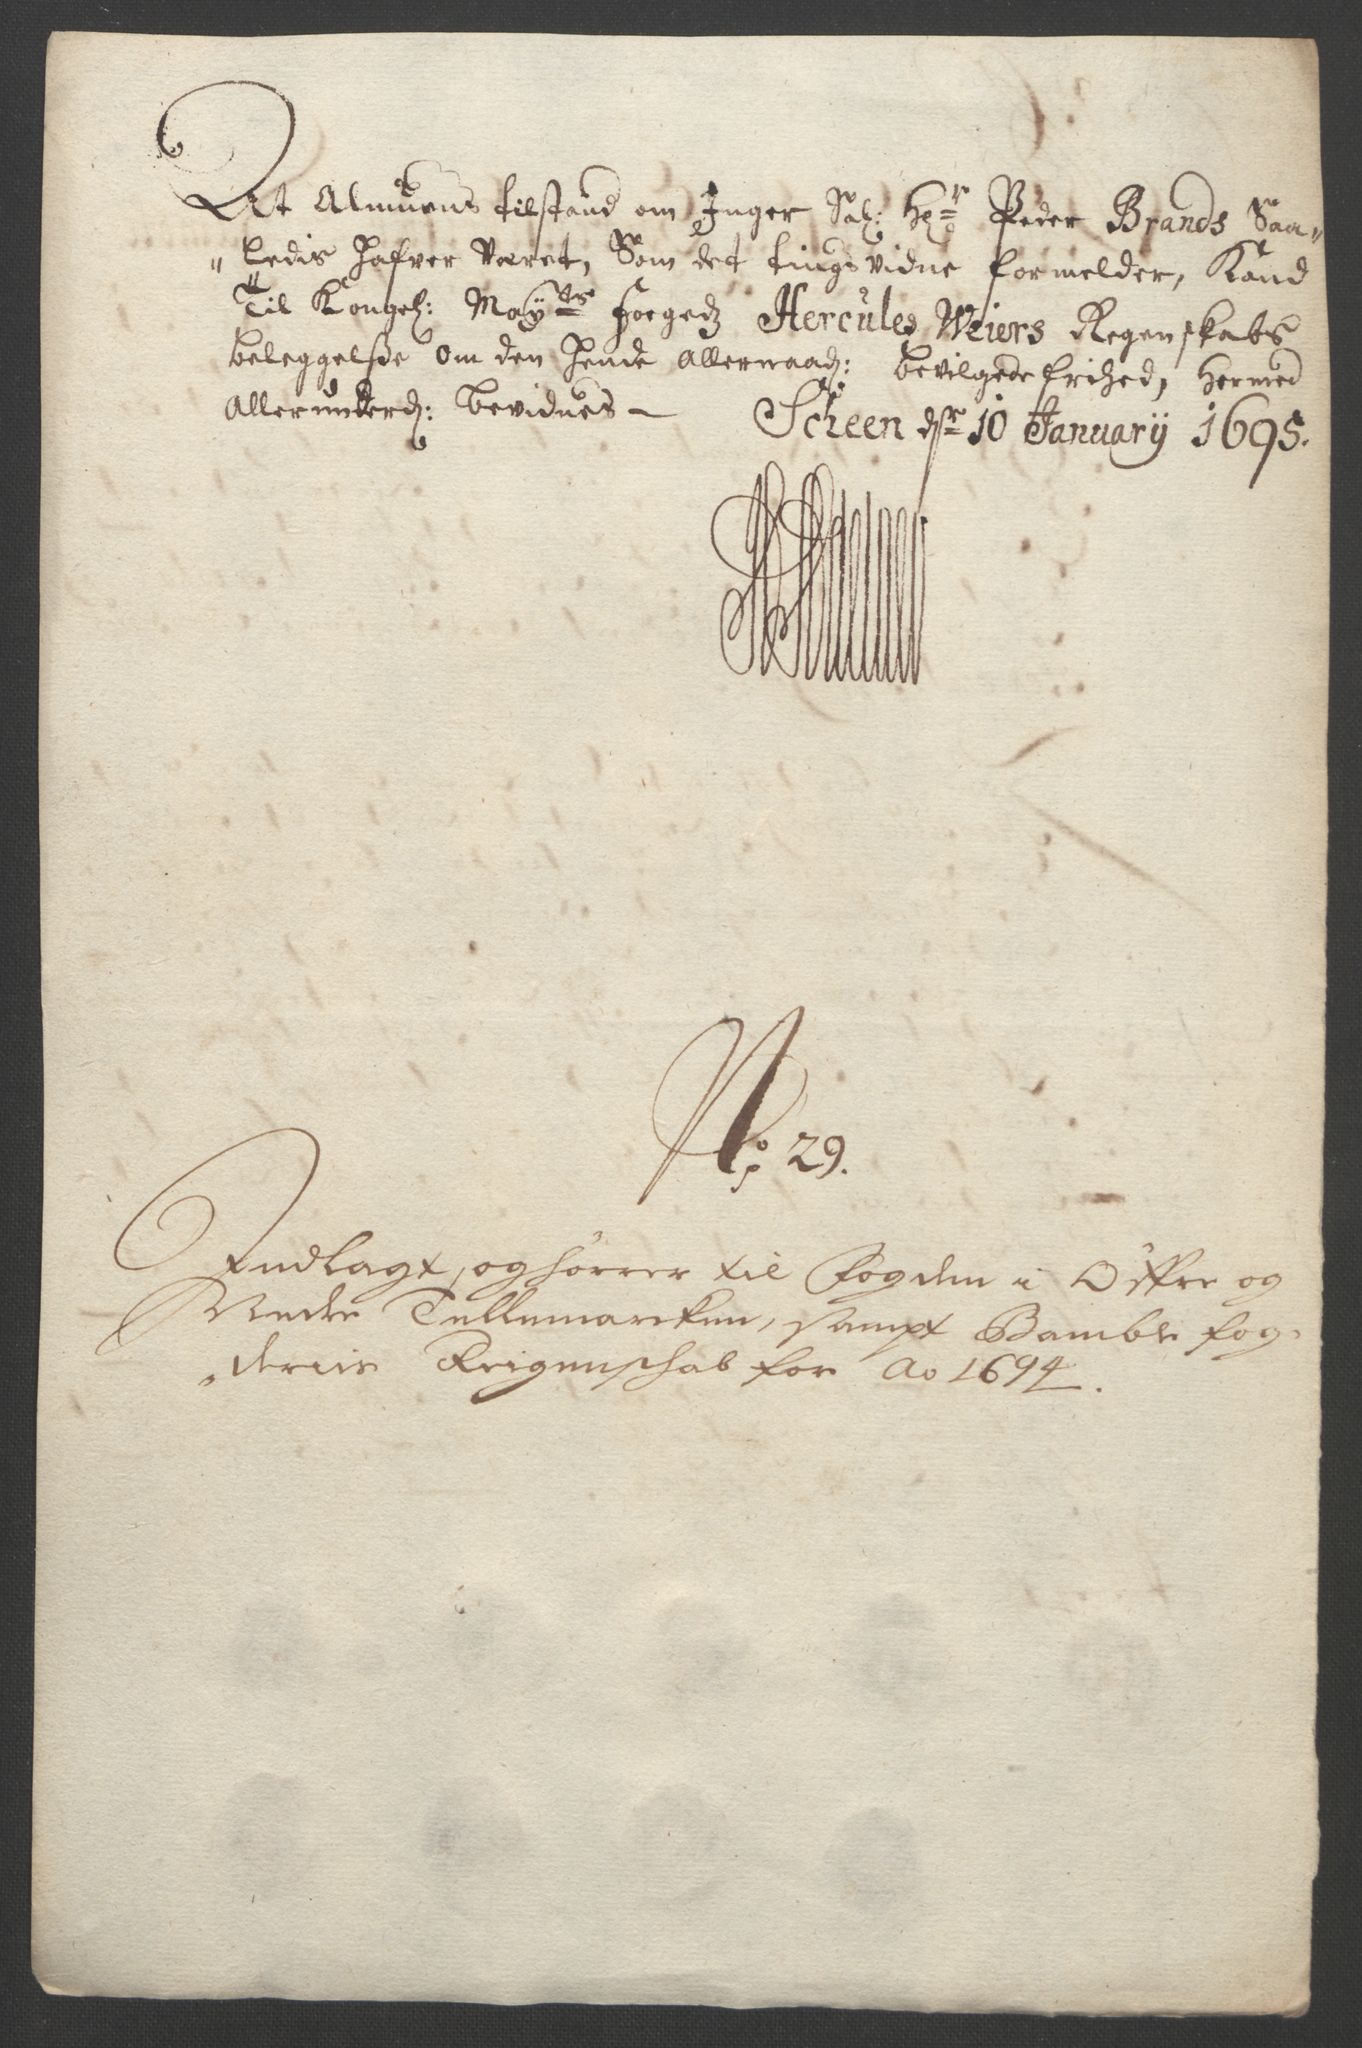 At Almuens tilstand om Inger Sal: Hr: Peder Brands Saa„
„ledis hafver veret, Som det tingsvidne formelder, Kand
Til Kongel: Mayts: Foegedz Hercules Weiers Regenskabs
beleggelsse om den hende Allernaad: bevilgede frihed, hermed
Allerunderd: bevidnes – Scheen dr 10 January 1695.
No: 29.
Indlagt, og hörrer til Fogden i Öffre og
Nedre Tellemarcken, sampt Bamble fog„
„deriis Reigenschab for Ao 1694.